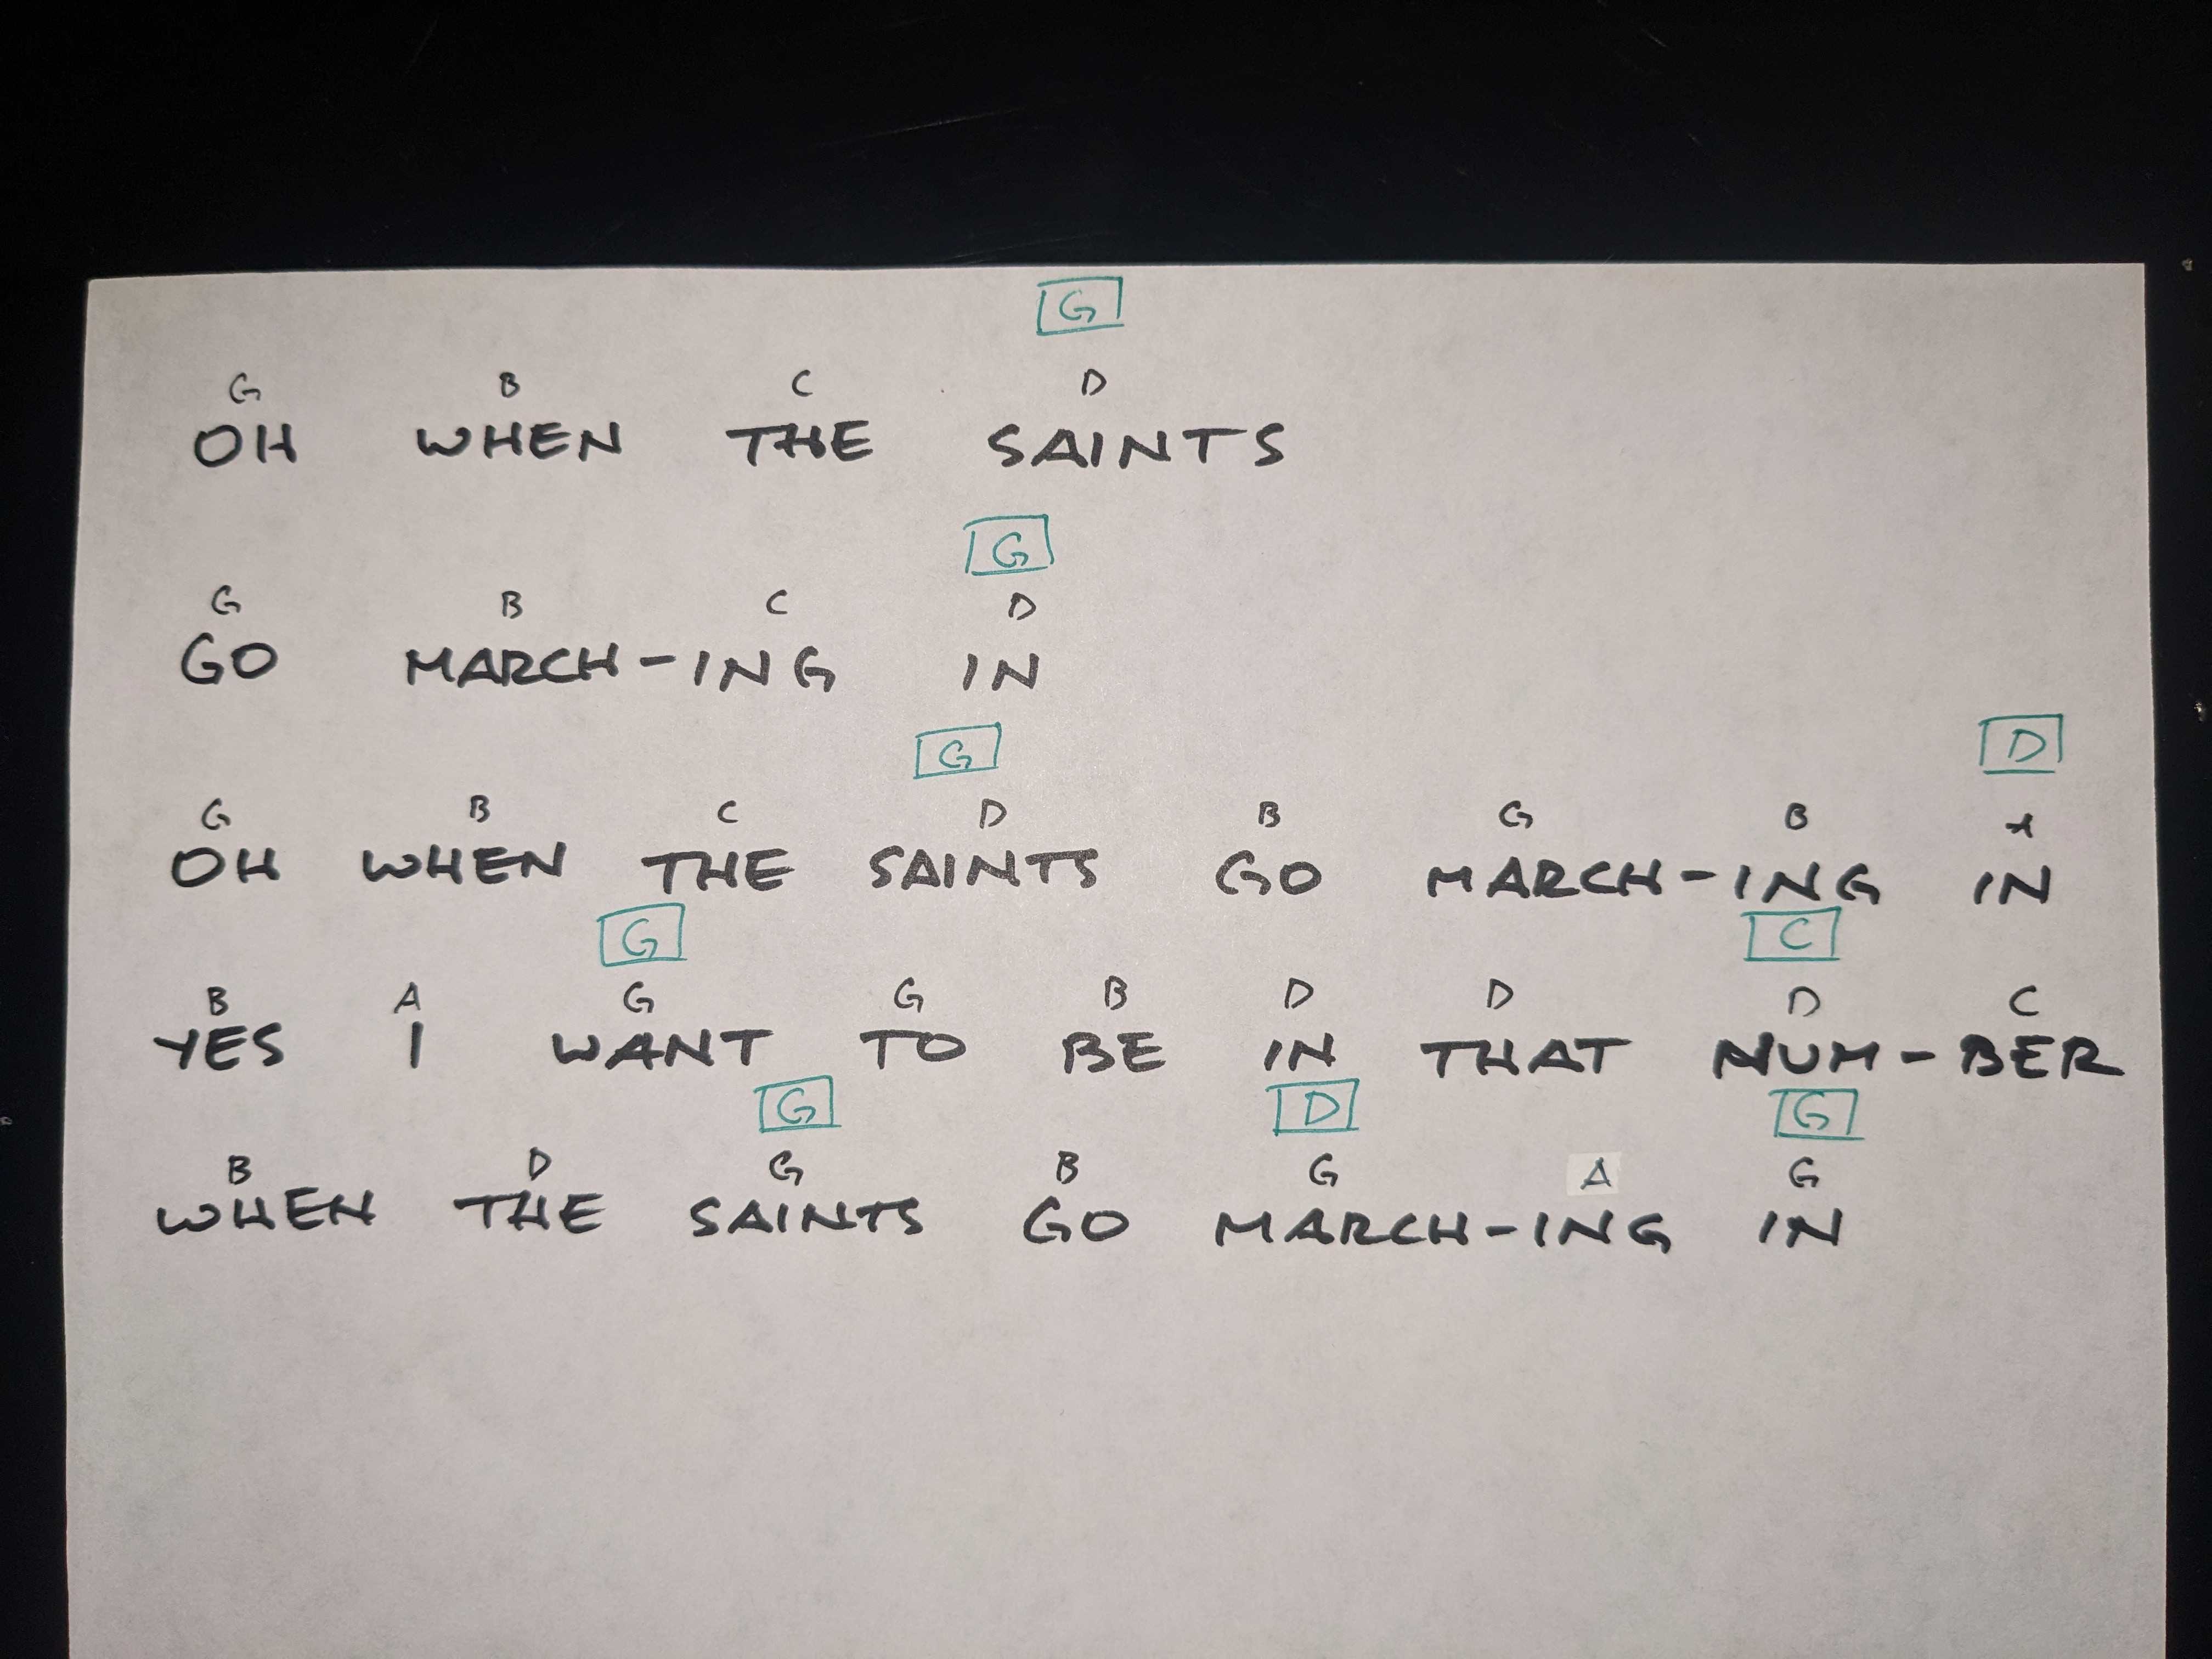 G
G B C D
OH WHEN THE SAINTS
G
G B C D
GO MARCH-ING IN
G D
G B C D B G B A
OH WHEN THE SAINTS GO MARCH-ING IN
G C
B A G G B D D D C
YES I WANT TO BE IN THAT NUM-BER
G D G
B D G B G A G
WHEN THE SAINTS GO MARCH-ING IN